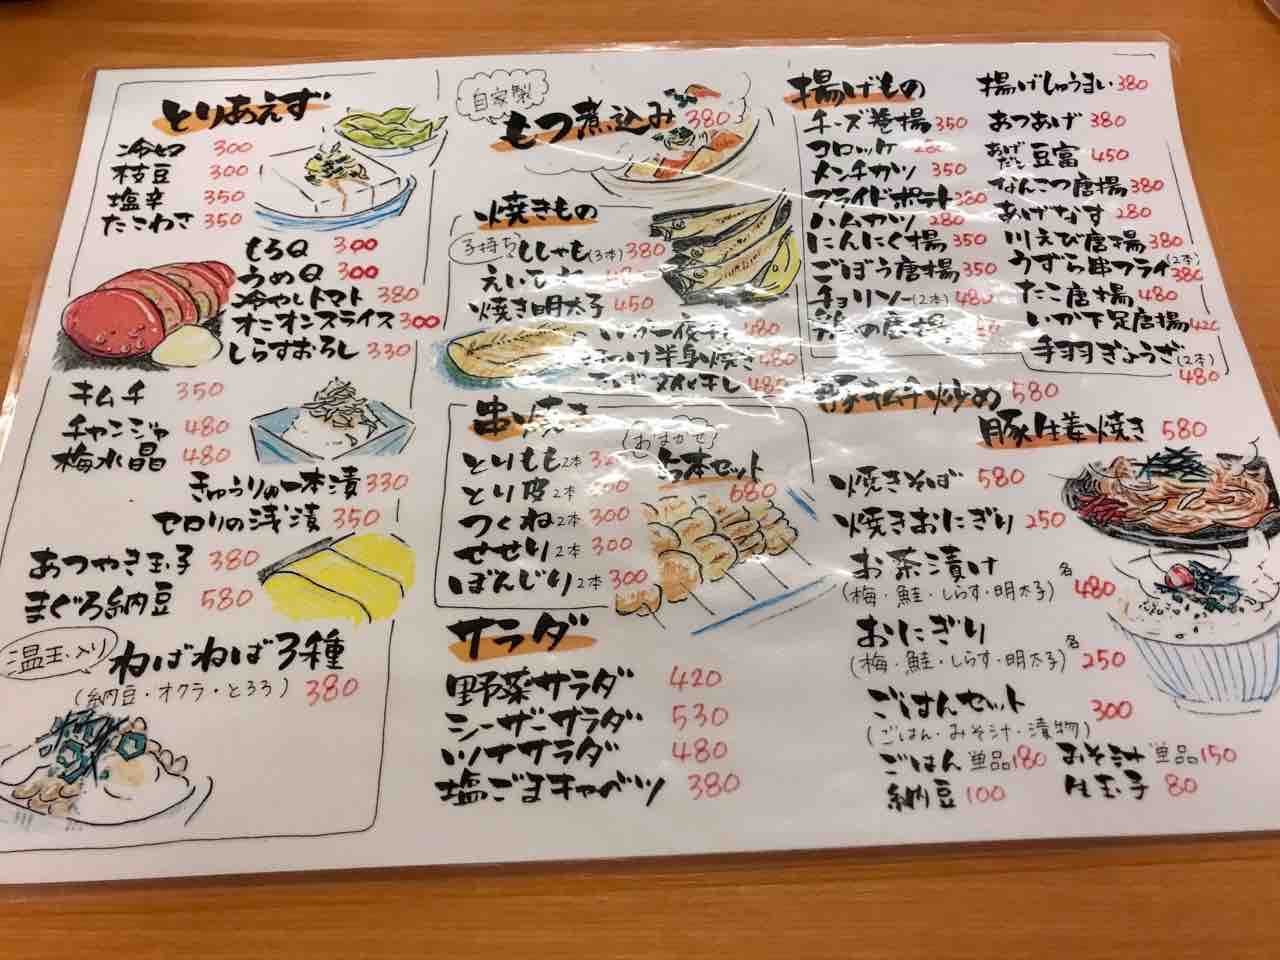 とりあえず
冷奴 300
枝豆 300
塩辛 350
たこわさ 350
もろQ 300
うめQ 300
冷やしトマト 380
オニオンスライス 300
しらすおろし 330
キムチ 350
チャンジャ 480
梅水晶 480
きゅうりの一本漬 330
セロリの浅漬 350
あつやき玉子 380
まぐろ納豆 580
温玉入り
ねばねば3種
(納豆・オクラ・とろろ) 380
自家製
もつ煮込み 380
焼きもの
子持ち ししゃも(3本) 380
えいひれ 480
焼き明太子 450
いか一夜干し 480
ほっけ半身焼き 480
480
串焼き
とりもも2本
とり皮2本
つくね2本 300
せせり2本 300
ぼんじり2本 300
おまかせ
5本セット
680
サラダ
野菜サラダ 420
シーザーサラダ 530
ツナサラダ 480
塩ごまキャベツ 380
揚げもの
チーズ巻揚 350
コロッケ
メンチカツ 350
フライドポテト 380
ハムカツ 280
にんにく揚 350
ごぼう唐揚 350
チョリソー(2本) 480
の唐揚
揚げしゅうまい 380
あつあげ 380
あげだし豆富 450
なんこつ唐揚 380
あげなす 280
川えび唐揚 380
うずら串フライ(2本) 380
たこ唐揚 480
いか下足唐揚 420
手羽ぎょうざ(2本)
480
豚キムチ炒め 580
豚生姜焼き 580
焼きそば 580
焼きおにぎり 250
お茶漬け
(梅・鮭・しらす・明太子) 各480
おにぎり
(梅・鮭・しらす・明太子) 各250
ごはんセット 300
(ごはん・みそ汁・漬物)
ごはん 単品180 みそ汁 単品150
納豆 100 生玉子 80